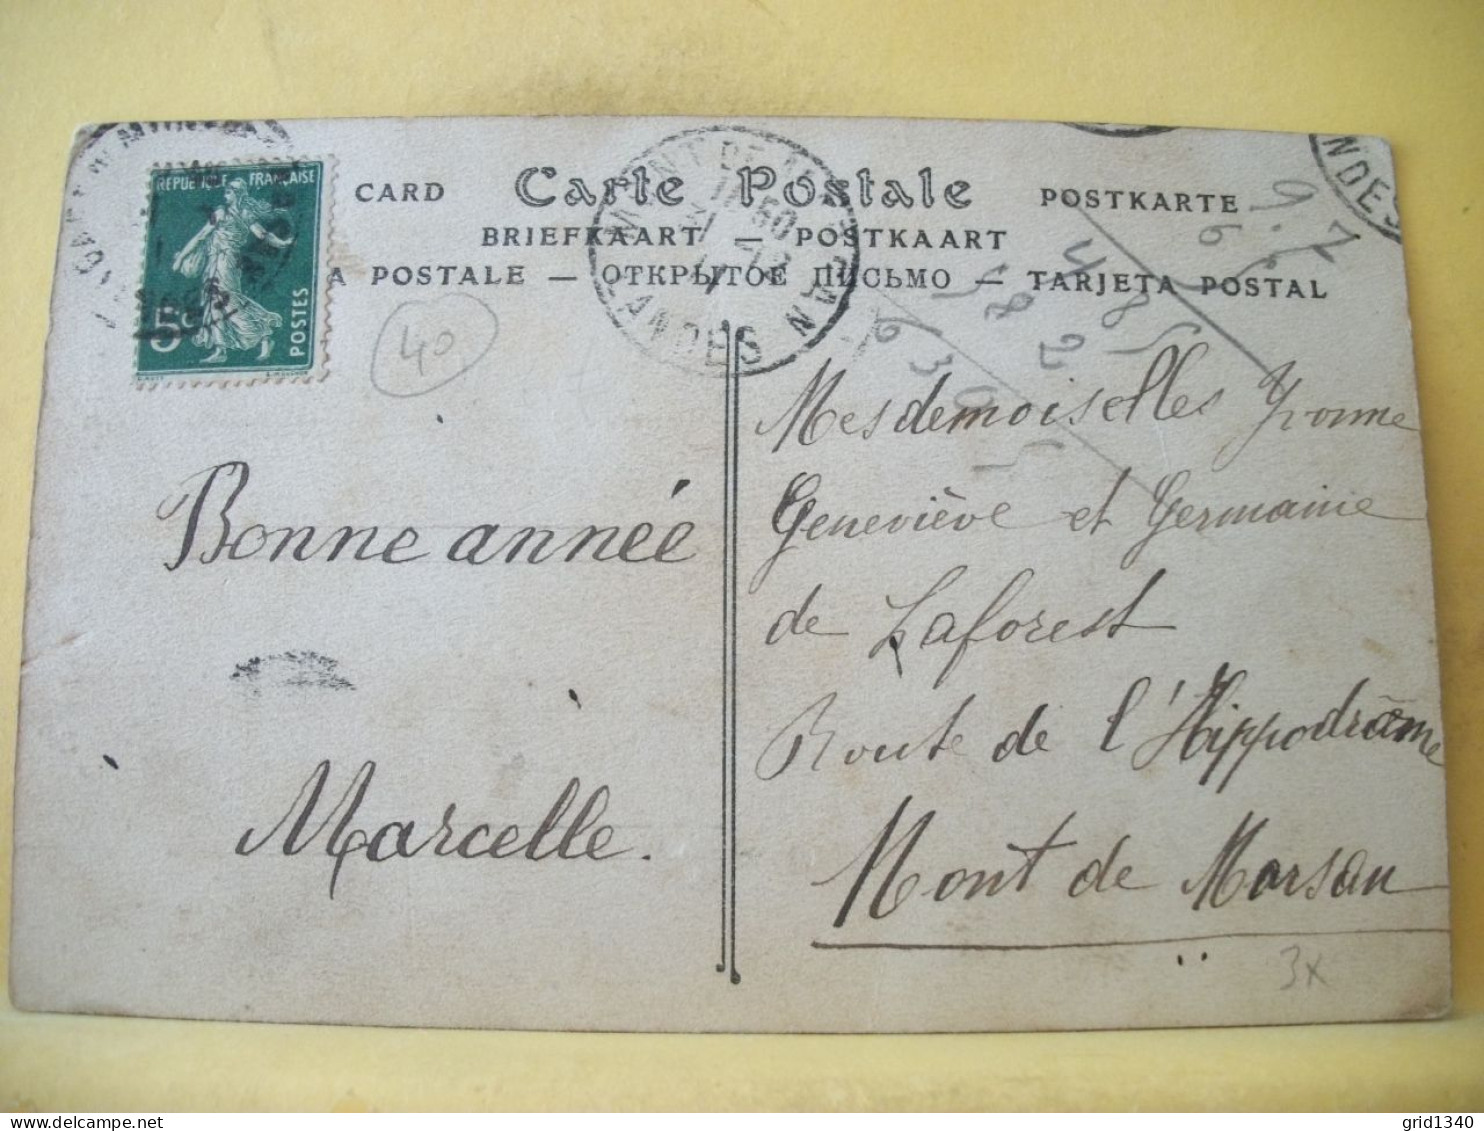 CARD Carte Postale POSTKARTE
BRIEFKAART — POSTKAART
A POSTALE — ОТКРЫТОЕ ПИСЬМО — TARJETA POSTAL
REPUBLIQUE FRANÇAISE
5c
POSTES
MONT DE MARSAN
LANDES
NDES
40
Bonne année
Marcelle.
Mesdemoiselles Yvonne
Geneviève et Germaine
de Laforest
Route de l'Hippodrome
Mont de Marsan
3x
grid1340